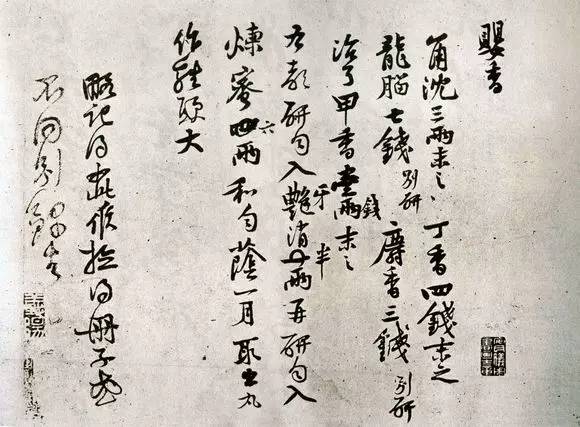 嬰香
角沈三兩末之 丁香四錢末之
龍腦七錢別研 麝香三錢別研
治了甲香壹兩錢末之
右都研勻入艷牙消半兩再研勻入
煉蜜四六兩和勻蔭一月取出丸
作雞頭大
略記得如此候檢得冊子或
不同別錄去